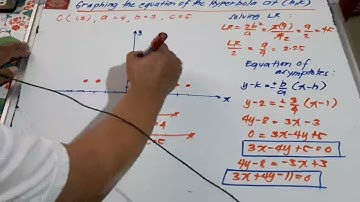 Graphing the equation of the Hyperbola at (h,k)
C (1,2), a = 4, b = 3, c = 5
Solving LR:
LR = 2b²/a =
= 4.5
LR/2 = 9/4 = 2.25
Equation of
asymptotes:
y-k = ± b/a (x-h)
y-2 = ± 3/4 (x-1)
4y-8 = 3x-3
0 = 3x-4y+5
3x-4y+5=0
4y-8 = -3x+3
3x+4y-11=0
y
x